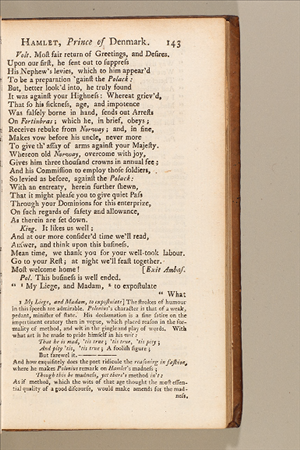 HAMLET, Prince of Denmark. 143
Volt. Most fair return of Greetings, and Desires.
Upon our first, he sent out to suppress
His Nephew's levies, which to him appear'd
To be a preparation 'gainst the Polack:
But, better look'd into, he truly found
It was against your Highness: Whereat griev'd,
That so his sickness, age, and impotence
Was falsely borne in hand, sends out Arrests
On Fortinbras; which he, in brief, obeys;
Receives rebuke from Norway; and, in fine,
Makes vow before his uncle, never more
To give th' assay of arms against your Majesty.
Whereon old Norway, overcome with joy,
Gives him three thousand crowns in annual fee;
And his Commission to employ those soldiers,
So levied as before, against the Polack:
With an entreaty, herein further shewn,
That it might please you to give quiet Pass
Through your Dominions for this enterprize,
On such regards of safety and allowance,
As therein are set down.
King. It likes us well;
And at our more consider'd time we'll read,
Answer, and think upon this business.
Mean time, we thank you for your well-took labour.
Go to your Rest; at night we'll feast together.
Most welcome home! [Exit Ambas.
Pol. This business is well ended.
" ¹ My Liege, and Madam, to expostulate
" What
1 My Liege, and Madam, to expostulate] The strokes of humour
in this speech are admirable. Polonius's character is that of a weak,
pedant, minister of state. His declamation is a fine satire on the
impertinent oratory then in vogue, which placed reason in the for-
mality of method, and wit in the gingle and play of words. With
what art is he made to pride himself in his wit:
That he is mad, 'tis true; 'tis true, 'tis pity;
And pity 'tis, 'tis true; A foolish figure;
But farewel it.
And how exquisitely does the poet ridicule the reasoning in fashion,
where he makes Polonius remark on Hamlet's madness;
Though this be madness, yet there's method in't:
As if method, which the wits of that age thought the most essen-
tial quality of a good discourse, would make amends for the mad-
ness.